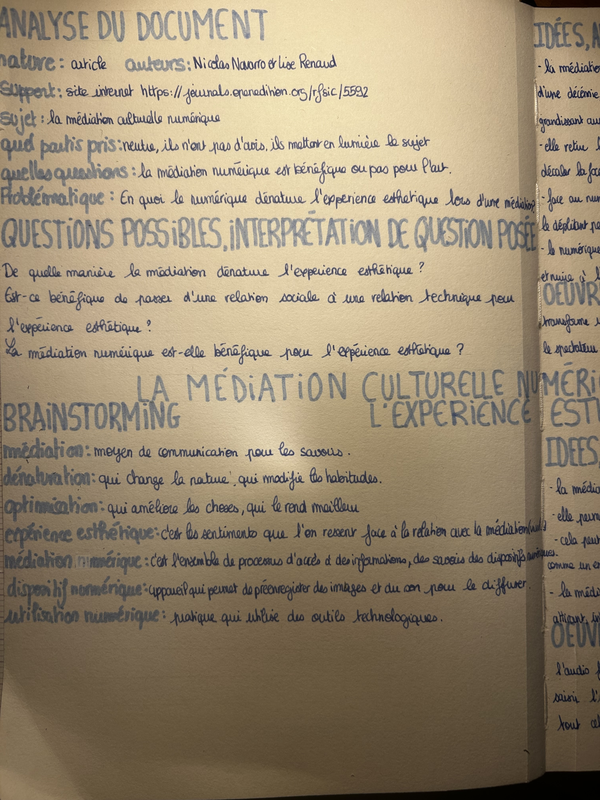 ANALYSE DU DOCUMENT
nature: article auteurs: Nicolas Navarro et Lise Renaud
support: site internet https://journals.openedition.org/rfsic/5592
sujet: la médiation culturelle numérique
quel partis pris: neutre, ils n'ont pas d'avis, ils mettent en lumière le sujet
quelles questions: la médiation numérique est bénéfique ou pas pour l'art.
Problématique: En quoi le numérique dénature l'experience esthetique lors d'une médiation?
QUESTIONS POSSIBLES, INTERPRÉTATION DE QUESTION POSÉE
De quelle manière la médiation dénature l'experience esthétique?
Est-ce bénéfique de passer d'une relation sociale à une relation technique pour
l'expérience esthétique?
La médiation numérique est-elle bénéfique pour l'expérience esthétique?
LA MÉDIATION CULTURELLE NUMÉRI
BRAINSTORMING L'EXPERIENCE EST
médiation: moyen de communication pour les savoirs.
dénaturation: qui change la nature, qui modifie les habitudes.
optimisation: qui améliore les choses, qui le rend meilleur
expérience esthétique: c'est les sentiments que l'on ressent face à la relation avec la médiation
médiation numérique: c'est l'ensemble de processus d'accès à des informations, des savoirs des dispositifs
dispositif numérique: appareil qui permet de préenregistrer des images et du son pour le diffuser.
utilisation numérique: pratique qui utilise des outils technologiques.
IDÉES, A
- la médiatio
d'une décennie
grandissant au
- elle retire l
décaler la fac
- face au num
le déploiant p
- le numérique
et nuire à l
OEUVR
transforme
le spectateur
IDEES,
- la média
- elle perm
- cela peut
comme un
- la médi
OEUV
l'audio
saisir l'
tout ce